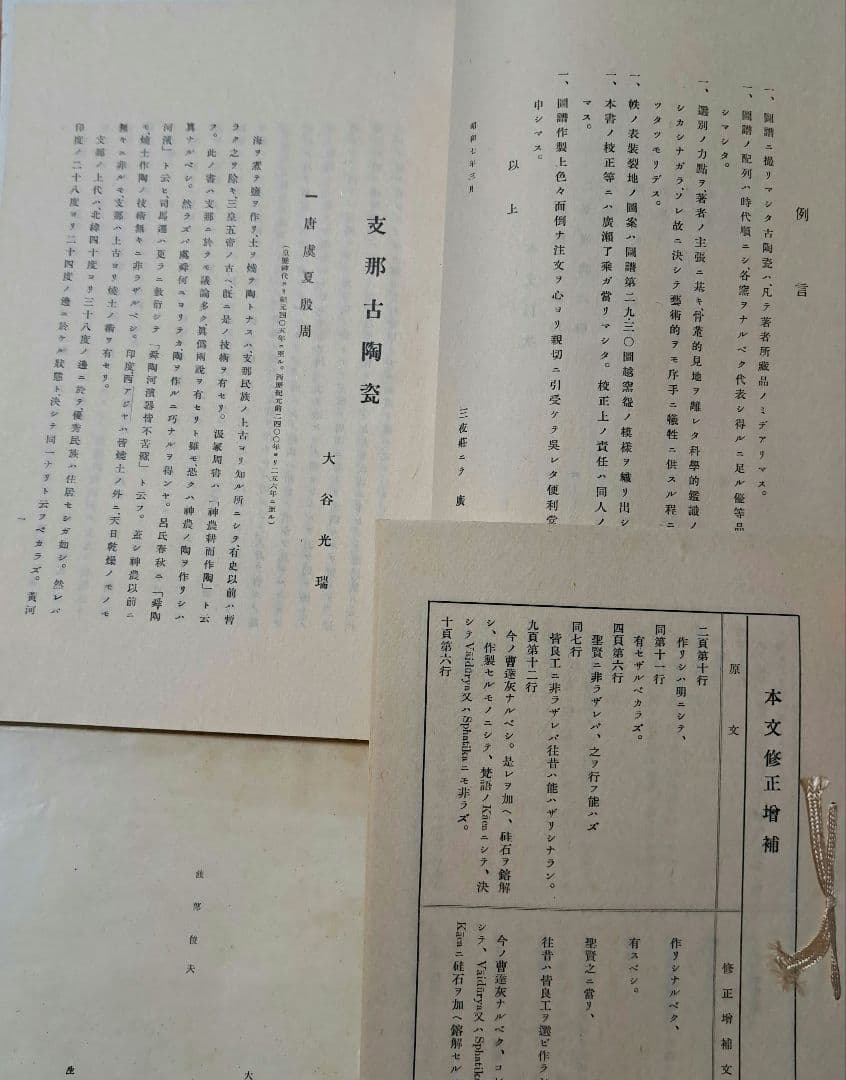 例言
一、圖譜ニ撮リマシタ古陶瓷ハ、凡テ著者所藏品ノミデアリマス。
一、圖譜ノ配列ハ時代順ニシ、各窯ヲナルベク代表シ得ルニ足ル優等品
シマシタ。
一、選別ノ力點ヲ、著者ノ主張ニ基キ、骨董的見地ヲ離レタ科學的鑑識ノ
シカシナガラ、ソレ故ニ決シテ藝術的ヲモ序手ニ犧牲ニ供スル程ニ
ツタツモリデス。
一、帙ノ表裝裂地ノ圖案ハ圖譜第二九、三〇圖越窯盌ノ模樣ヲ織リ出シ
一、本書ノ校正等ニハ廣瀨了乘ガ當リマシタ。校正上ノ責任ハ同人ノ
マス。
一、圖譜作製上色々面倒ナ注文ヲ心ヨリ親切ニ引受ケテ吳レタ便利堂
申シマス。
以上
昭和七年三月
三夜莊ニテ 廣
支那古陶瓷
大谷光瑞
一唐虞夏殷周
海ヲ煮テ鹽ヲ作リ、土ヲ燒テ陶トナスハ支那民族ノ上古ヨリ知ル所ニシテ、有史以前ハ暫
ラク之ヲ除キ、三皇五帝ノ古ヘ、旣ニ是ノ技術ヲ有セリ。汲冢周書ハ「神農耕而作陶」ト云
フ。此ノ書ハ支那ニ於テモ議論多ク眞僞兩說ヲ有セリト雖モ、恐クハ神農ノ陶ヲ作リシハ
眞ナルベシ。然ラズバ虞舜何ニヨリテカ陶ヲ作ルニ巧ナルヲ得ンヤ。呂氏春秋ニ「舜陶
河濱」ト云ヒ司馬遷ハ更ラニ敷衍シテ「舜陶河濱器皆不苦窳」ト云フ。蓋シ神農以前ニ
モ、燒土作陶ノ技術無キニ非ラザルベシ。印度、西アジヤハ皆燒土ノ外ニ、天日乾燥ノモノモ
無キニ非ルモ、支那ハ上古ヨリ燒土ノ術ヲ有セリ。
支那ノ上代ハ、北緯四十度ヨリ三十八度ノ邊ニ於テ、優秀民族ハ住居セシガ如シ。然レバ
印度ノ二十八度ヨリ二十四度ノ邊ニ於ケル狀態ト、決シテ同一ナリト云フベカラズ。黃河
一
本文修正增補
原文
二頁第十行
作リシハ明ニシテ、
同第十一行
有セザルベカラズ。
四頁第六行
聖賢ニ非ラザレバ、之ヲ行フ能ハズ
同七行
皆良工ニ非ラザレバ往昔ハ能ハザリシナラン。
九頁第十二行
今ノ曹達灰ナルベシ。是レヲ加ヘ、硅石ヲ鎔解
シ、作製セルモノニシテ、梵語ノKācaニシテ、決
シテVaidūrya又ハSphatikaニモ非ラズ。
十頁第六行
修正增補文
作リシナルベク、
有スベシ。
聖賢之ニ當リ、
往昔ハ皆良工ヲ選ビ作ラン
今ノ曹達灰ナルベク、コレ
シテ、Vaidūrya又ハSphatika
Kācaニ硅石ヲ加ヘ鎔解セル
俊夫
大
生